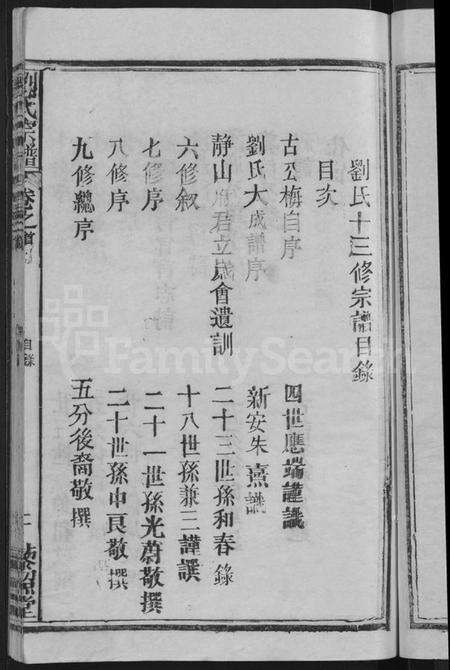 劉氏十三修宗譜目錄
目次
古公梅自序 四世應瑞謹識
劉氏大成譜序 新安朱熹識
静山府君立歲會遺訓 二十三世孫和春錄
六修叙 十八世孫兼三謹譔
七修序 二十一世孫光蔚敬撰
八修序 二十世孫申良敬撰
九修總序 五分後裔敬撰
劉氏宗譜
卷之首
目錄
二
FamilySearch